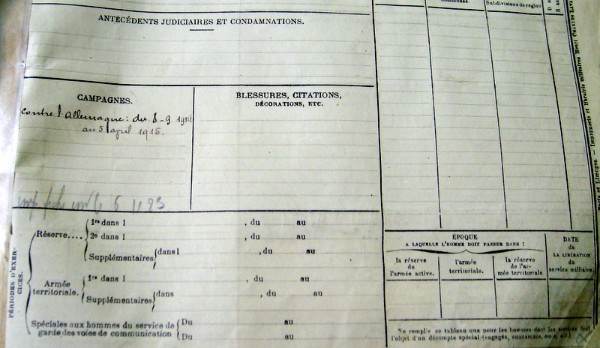 ANTÉCÉDENTS JUDICIAIRES ET CONDAMNATIONS.
Subdivisions de région
CAMPAGNES.
contre l'allemagne: du 8-9 1914
au 5 april 1915.
BLESSURES, CITATIONS,
DÉCORATIONS, ETC.
PÉRIODES D'EXERCICES.
Réserve....
1re dans l , du au
2e dans l , du au
Supplémentaires dans l , du au
Armée
territoriale.
1re dans l , du au
Supplémentaires dans , du au
Spéciales aux hommes du service de
garde des voies de communication
Du au
Du au
ÉPOQUE
A LAQUELLE L'HOMME DOIT PASSER DANS :
la réserve
de
l'armée active.
l'armée
territoriale.
la réserve
de l'ar-
mée territoriale
DATE
de
LA LIBÉRATION
du
service militaire.
Ne remplir ce tableau que pour les hommes dont les services font
l'objet d'un décompte spécial (engagés, omis, etc.)